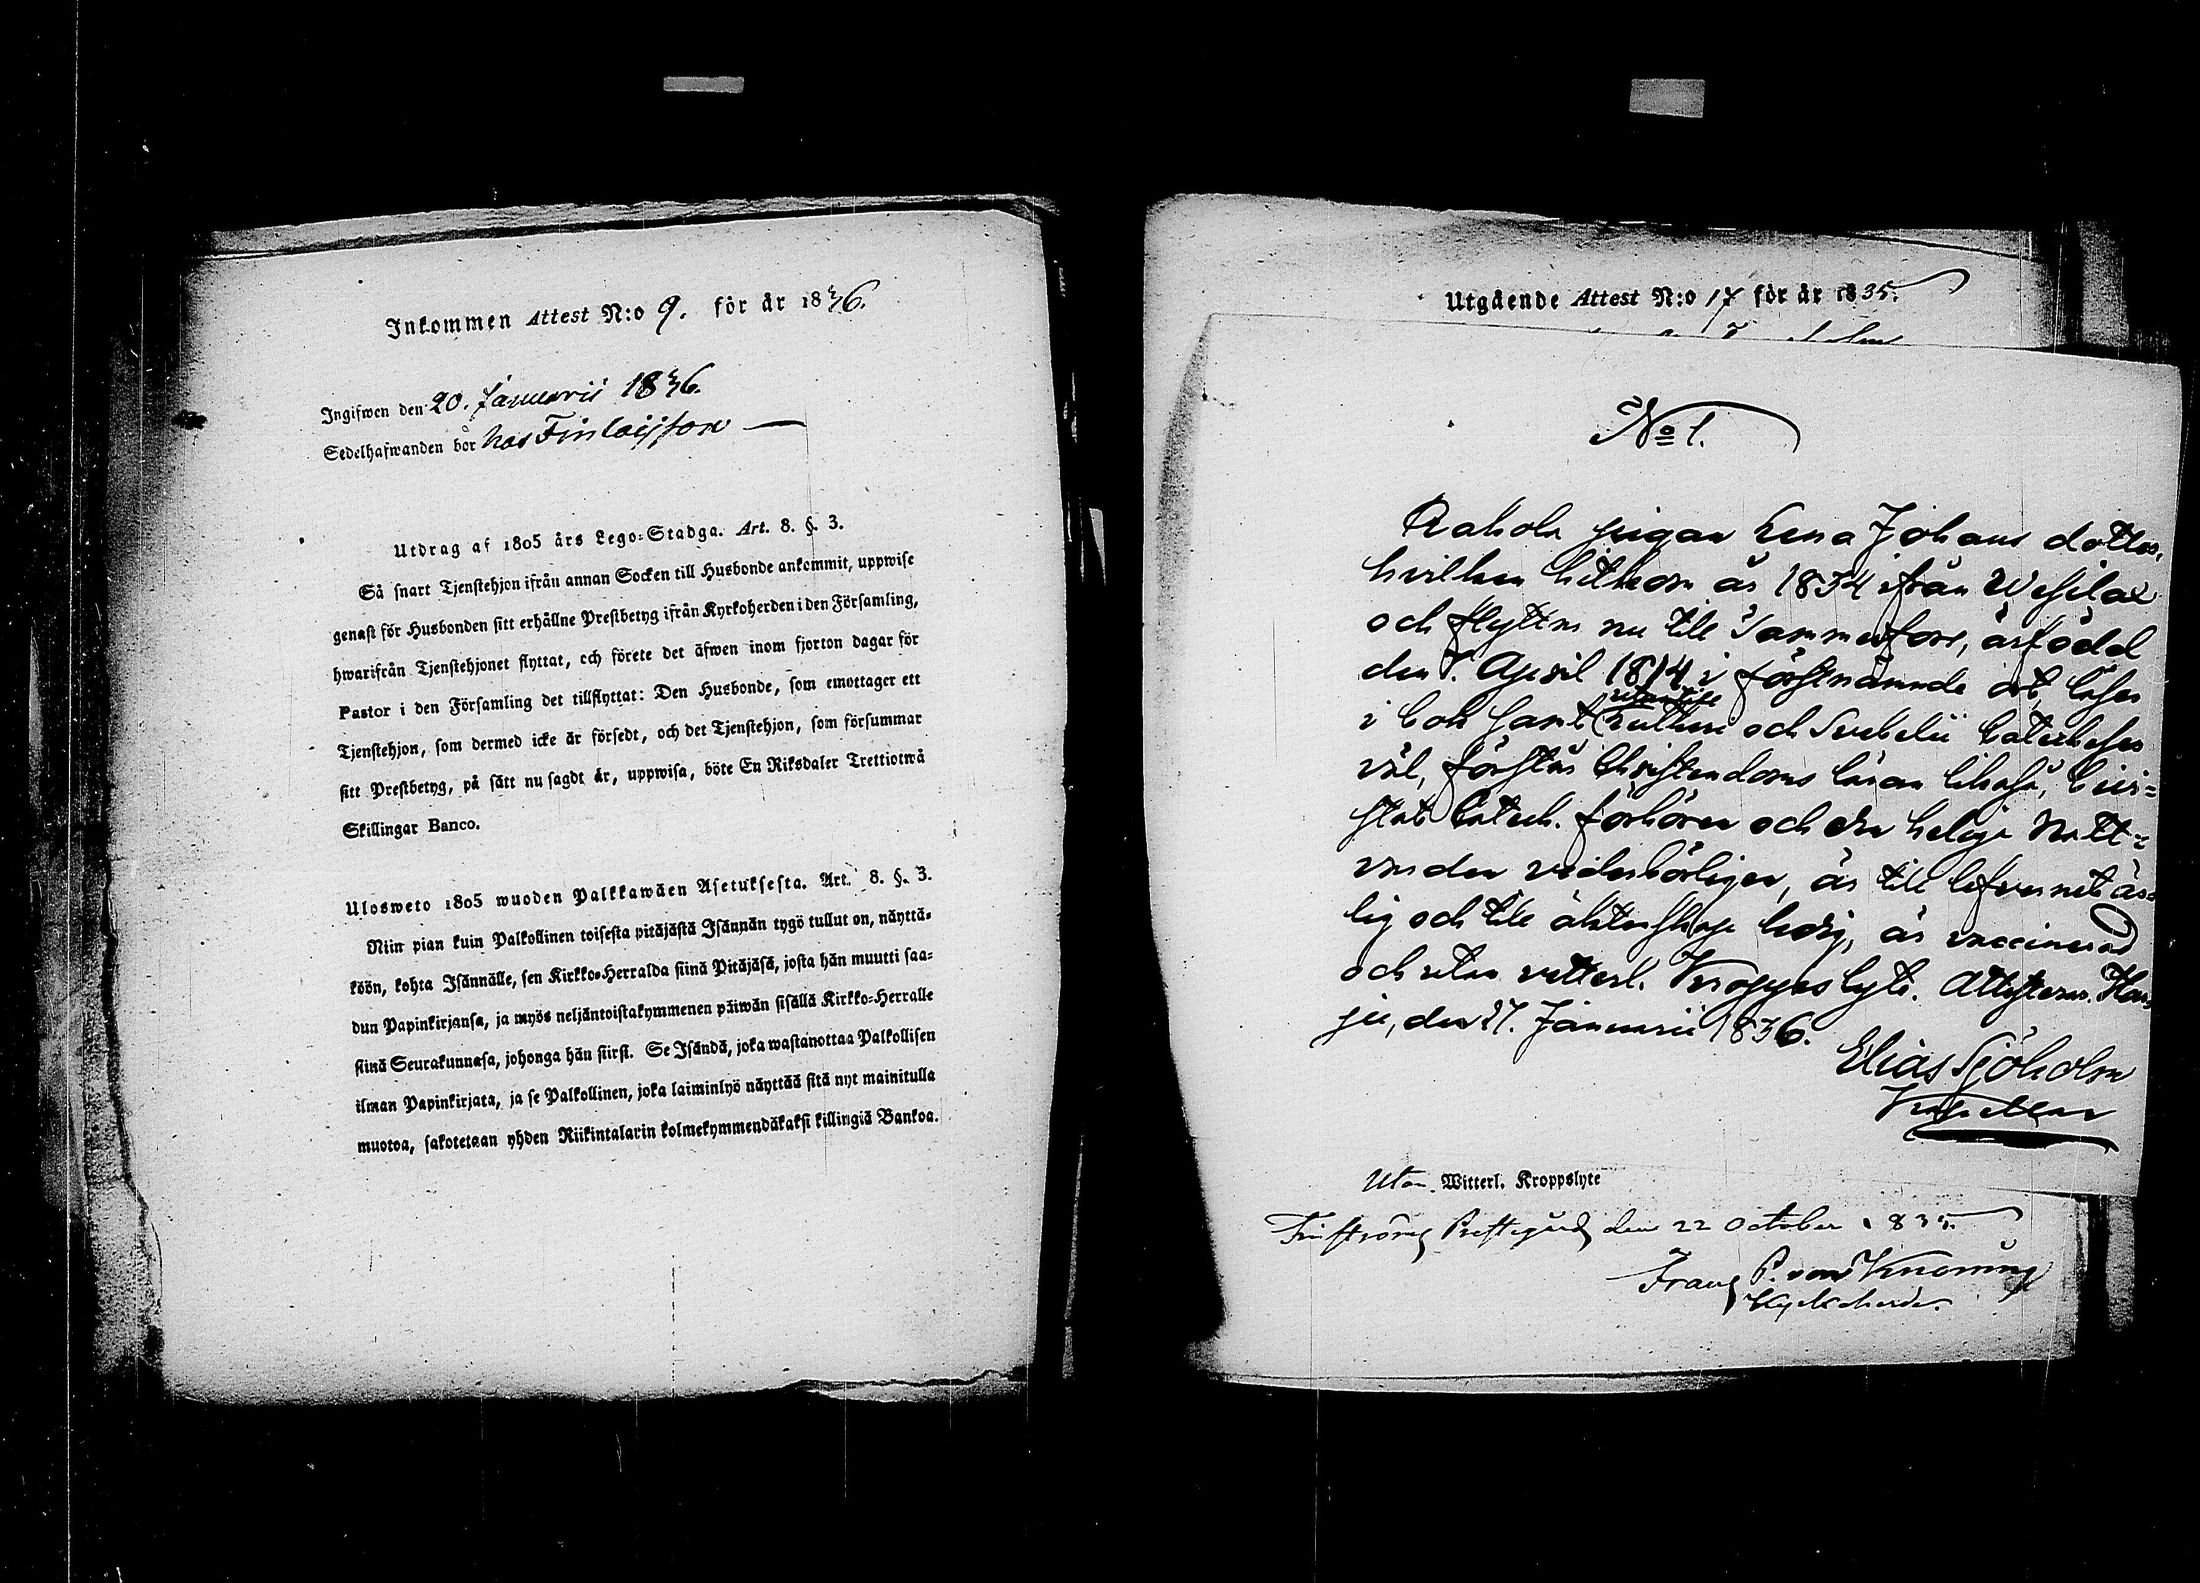 Inkommen Attest N:o 9. för år 1836.
Ingifwen den 20. Januarii 1836.
Sedelhafwanden bor hos Finlaijson
Utdrag af 1805 års Lego-Stadga. Art. 8. §. 3.
Så snart Tjenstehjon ifrån annan Socken till Husbonde ankommit, uppwise
genast för Husbonden sitt erhållne Prestbetyg ifrån Kyrkoherden i den Församling,
hwarifrån Tjenstehjonet flyttat, och förete det äfwen inom fjorton dagar för
Pastor i den Församling det tillflyttat: Den Husbonde, som emottager ett
Tjenstehjon, som dermed icke är försedt, och det Tjenstehjon, som försummar
sitt Prestbetyg, på sätt nu sagdt är, uppwisa, böte En Riksdaler Trettiotwå
Skillingar Banco.
Ulosweto 1805 wuoden Palkkawäen Asetuksesta. Art. 8. §. 3.
Niin pian kuin Palkollinen toisesta pitäjästä Isännän tygö tullut on, näyttä-
köön, kohta Isännälle, sen Kirkko-Herralda siinä Pitäjäsä, josta hän muutti saa-
dun Papinkirjansa, ja myös neljäntoistakymmenen päiwän sisällä Kirkko-Herralle
siinä Seurakunnasa, johonga hän siirsi. Se Isändä, joka wastanottaa Palkollisen
ilman Papinkirjata, ja se Palkollinen, joka laiminlyö näyttää sitä nyt mainitulla
muotoa, sakotetaan yhden Riikintalarin kolmekymmendäkaksi killingiä Bankoa.
Utgående Attest N:o 17 för år 1835.
No 1.
Rahola pigan Lena Johans dotter,
hvilken hitkom år 1834 ifrån Wesilax
och flyttar nu till Tammerfors, är född
den 7. April 1814 i förstnämnde ort, läser
i bok samt Lutheri och Svebelii Catecheser
väl, förstår Christendoms läran likaså, bevi-
stat Catech. förhören och den heliga Natt-
varden vederbörligen, är till lefvernet är-
lig och till äktenskap ledig, är vaccinerad
och utan vetterl. Kroppslyte. Attesterar. Har-
ju, den 17. Januarii 1836.
Elias Sjöholm
Kapellan
Utan Witterl. Kroppslyte
Prestegård den 22 October 1835.
Franz P. von Knorring
Kyrkoherde.